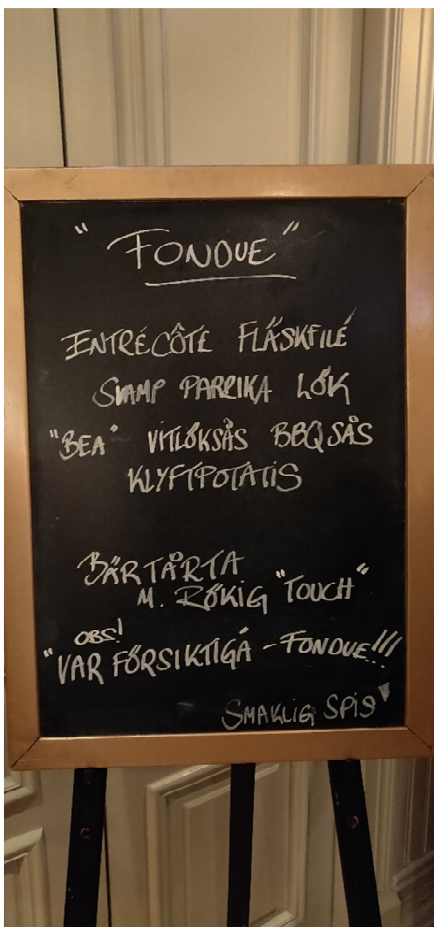 "FONDUE"
ENTRÉCÔTE FLÄSKFILÉ
SVAMP PAPRIKA LÖK
"BEA" VITLÖKSÅS BBQSÅS
KLYFTPOTATIS
BÄRTÅRTA
M. RÖKIG "TOUCH"
OBS!
"VAR FÖRSIKTIGA - FONDUE!!!
SMAKLIG SPIS